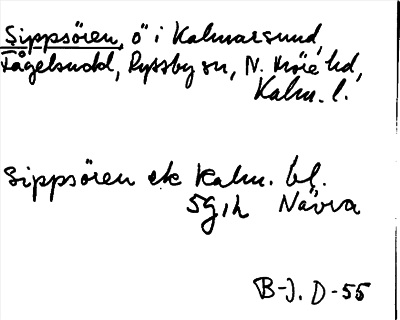 Sippsören, ö i Kalmarsund,
Fågelsudd, Ryssby sn, N. Möre hd,
Kalm. l.
Sippsören ek Kalm. bl.
5G 1h Nävra
B-J. D-55